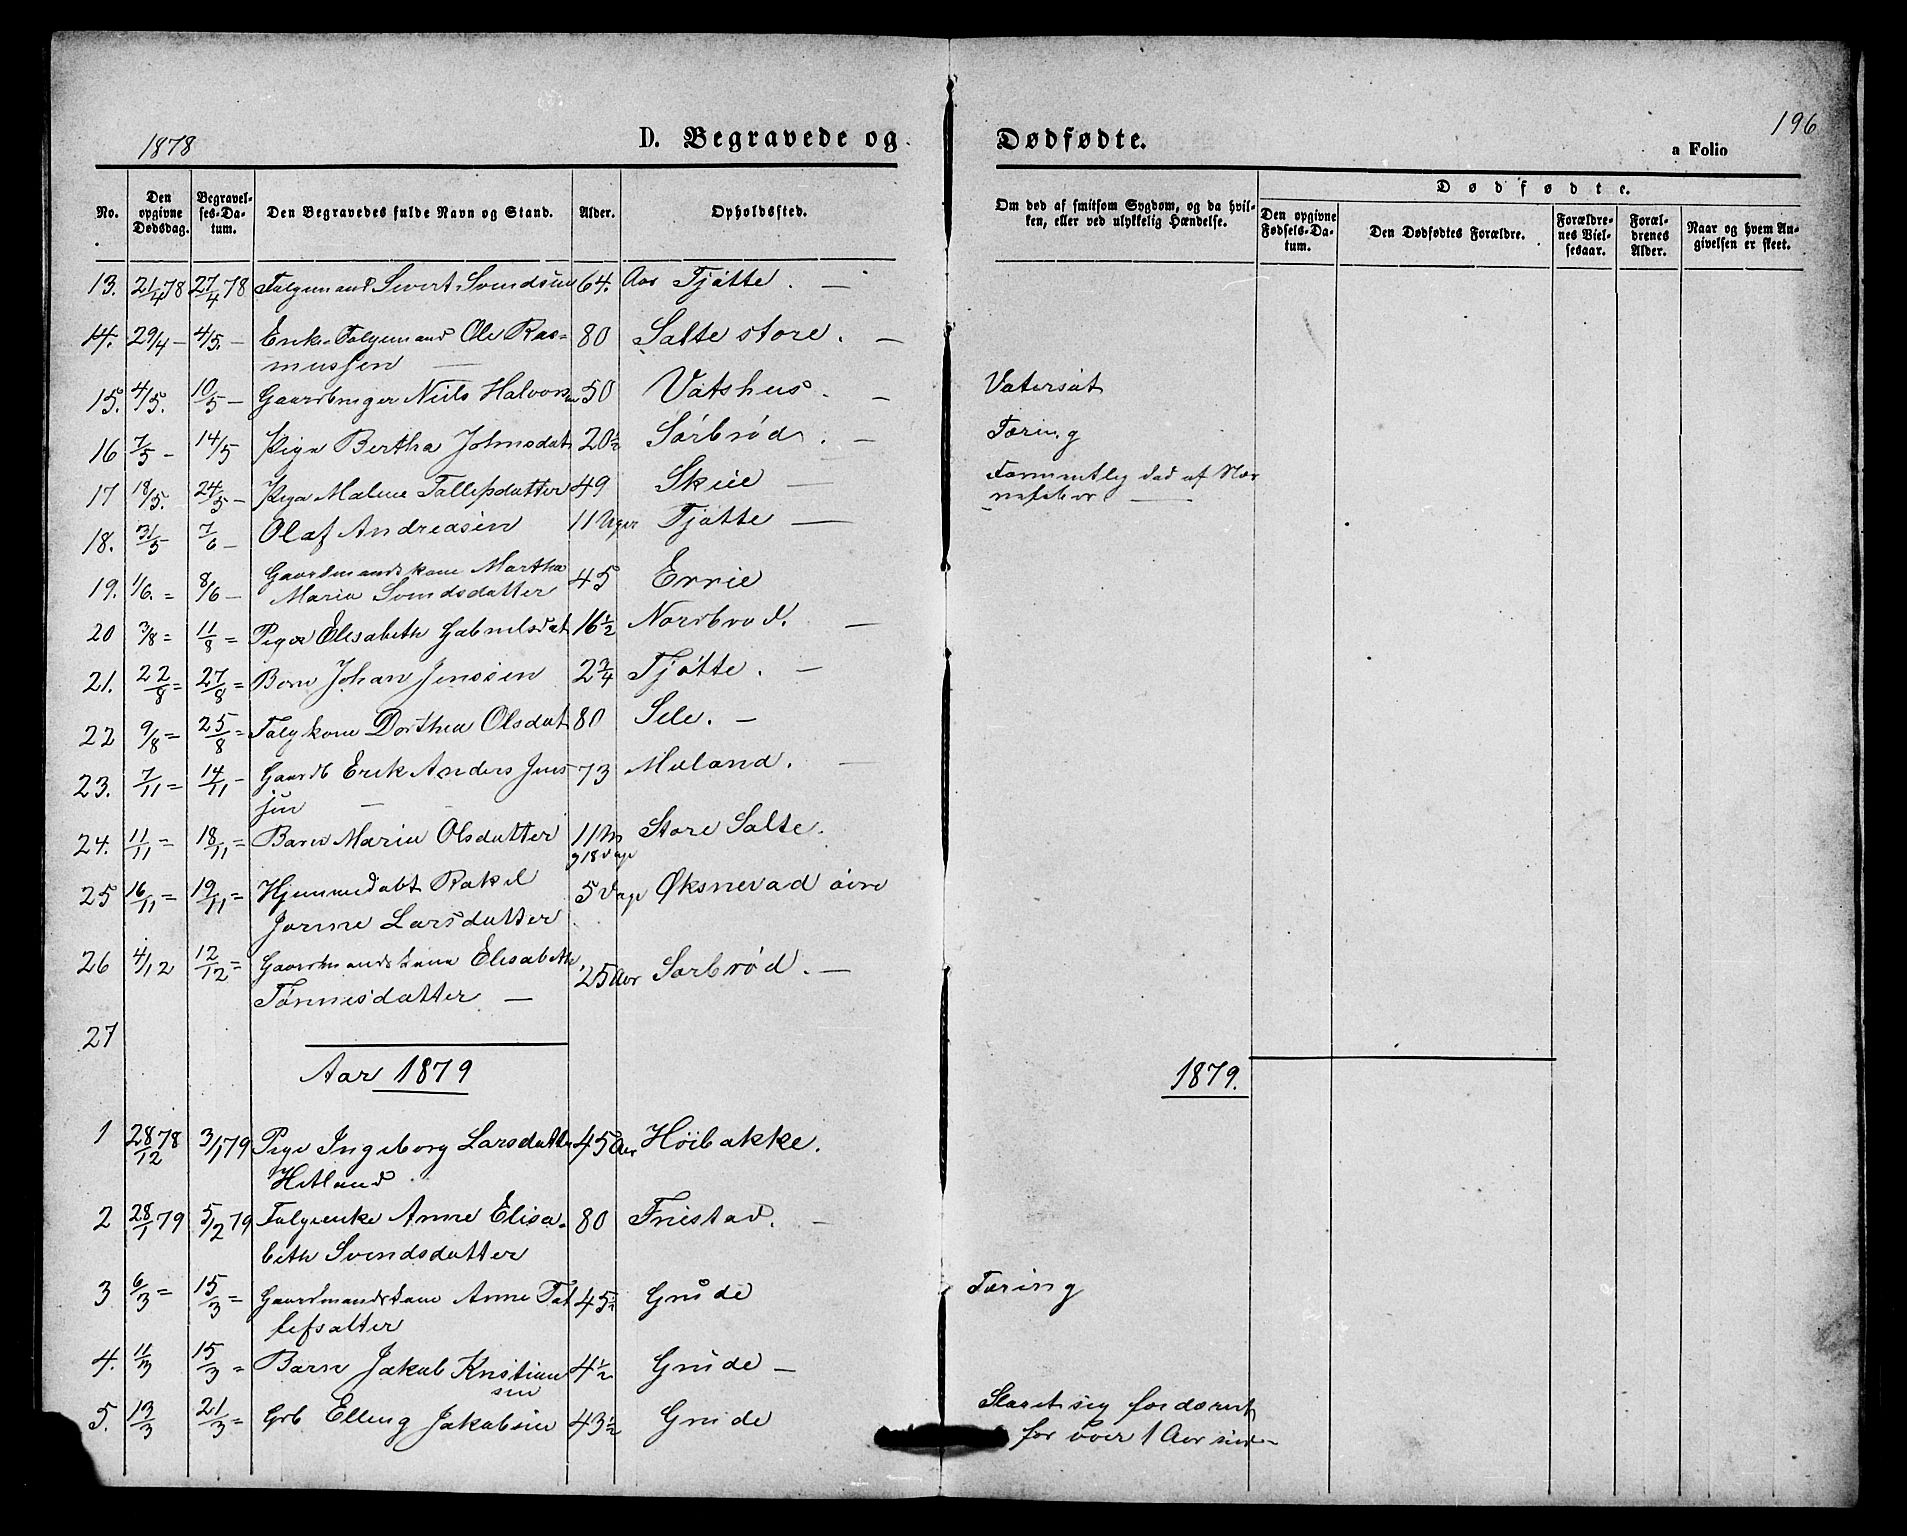 1878
D. Begravede og
Dødfødte.
196
a Folio
No.
Den opgivne Dødsdag.
Begravelses-Datum.
Den Begravedes fulde Navn og Stand.
Alder.
Opholdssted.
Om død af smitsom Sygdom, og da hvilken, eller ved ulykkelig Hændelse.
Dødfødte.
Den opgivne Fødsels-Datum.
Den Dødfødtes Forældre.
Forældrenes Vielsesaar.
Forældrenes Alder.
Naar og hvem Angivelsen er skeet.
13. 21/4 78 27/4 78 Folgemand Sivert Svendsen 64. Aar Tjøtte. —
14. 29/4 — 4/5. — Enk. Folgemand Ole Ras=
mussen —
80 Salte store. —
15. 4/5. 10/5 — Gaardbruger Niels Halvorsen 50 Vatshus. — Vatersot
16 7/5 — 14/5 Pige Bertha Johnsdat 20½ Sørbrød. — Tæring
17 18/5. 24/5 — Pige Malene Tollefsdatter 49 Skeie — Formentlig død af Ner
vefeber —
18. 31/5 7/6 — Olaf Andreasen 11 Uger Tjøtte —
19. 1/6. = 8/6 — Gaardmandskone Martha
Maria Svendsdatter 45 Errie
20 3/8 = 11/8 = Pige Elisabeth Gabrielsdat 16½ Nordbrød. —
21. 22/8 = 27/8 = Barn Johan Jensen 2¾ Tjøtte. —
22 9/8 = 25/8 = Folgkone Dorthea Olsdat 80 Sele. —
23. 7/11 = 14/11 — Gaardb Erik Anders Jens
sen — 73 Meland. —
24. 11/11 = 18/11 = Barn Maria Olsdatter 11 M
g 18 Dage Store Salte.
25 16/11 = 19/11 = Hjemmedøbt Rakel
Jorine Larsdatter
5 Dage Øksnevad øvre
26 4/12 12/12 = Gaardmandskone Elisabeth
Tønnesdatter — 25 Aar Sørbrød. —
27
Aar 1879
1879.
1 28/12 78 3/1 79 Pige Ingeborg Larsdatter
Hetland 45 Aar Høibakke.
2 28/1 79 5/2 79 Folgeenke Anne Elisa=
beth Svendsdatter 80 Friestad. —
3 6/3 = 15/3 = Gaardmandskone Anne Tol
lefsatter 45½ Grude Tæring
4. 11/3 15/3 = Barn Jakob Kristian
sen 4½ Grude —
5. 13/3 21/3 = Grb Elling Jakobsen 43½ Grude
for over 1 Aar siden